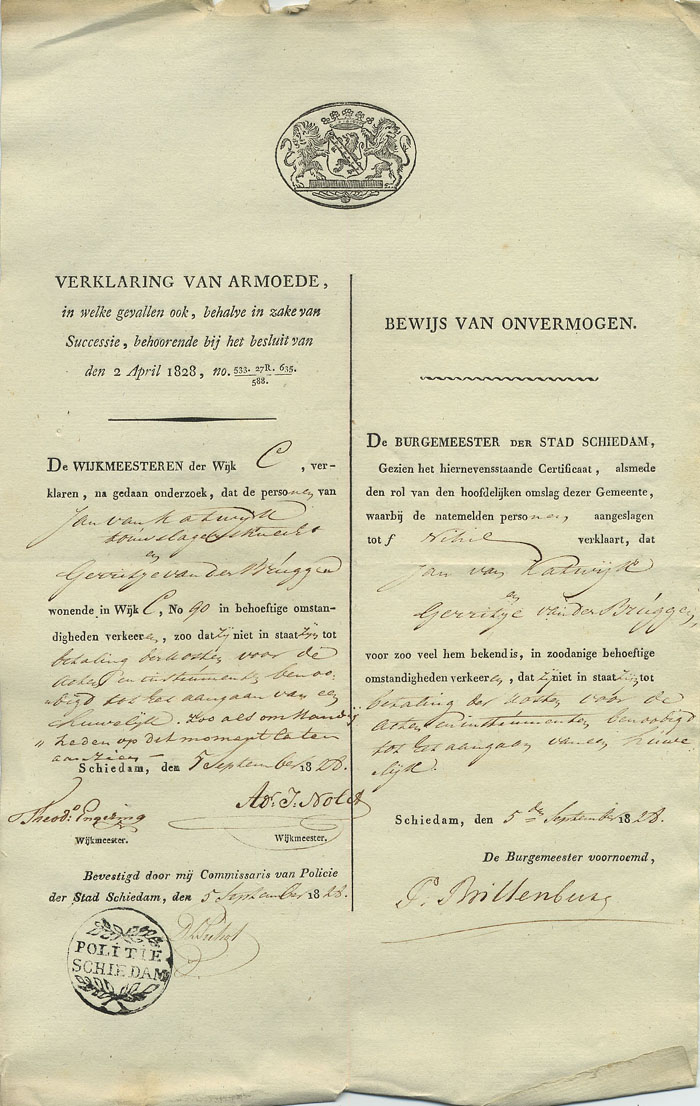 VERKLARING VAN ARMOEDE,
in welke gevallen ook, behalve in zake van
Successie, behoorende bij het besluit van
den 2 April 1828, no. 533. 27R. 635.
588.
De WIJKMEESTEREN der Wijk C, ver-
klaren, na gedaan onderzoek, dat de personen van
Jan van Katwijk
touwslagersknecht
en
Gerritje van der Bruggen
wonende in Wijk C, No 90 in behoeftige omstan-
digheden verkeeren, zoo dat zij niet in staat zijn tot
betaling der kosten voor de
acten en instrumenten benoo-
digd tot het aangaan van een
huwelijk. zoo als omstandig
"heden op dit moment laten
aanzien
Schiedam, den 5 September 1828.
Theod. Engering
Wijkmeester.
Ad. J. Nolet
Wijkmeester.
Bevestigd door mij Commisaris van Policie
der Stad Schiedam, den 5 September 1828.
POLITIE
SCHIEDAM
BEWIJS VAN ONVERMOGEN.
De BURGEMEESTER DER STAD SCHIEDAM,
Gezien het hiernevensstaande Certificaat, alsmede
den rol van den hoofdelijken omslag dezer Gemeente,
waarbij de natemelden personen, aangeslagen
tot f Nihil verklaart, dat
Jan van Katwijk
en
Gerritje van der Bruggen,
voor zoo veel hem bekend is, in zoodanige behoeftige
omstandigheden verkeeren, dat zij niet in staat zijn tot
betaling der kosten voor de
acten en instrumenten benoodigd
tot het aangaan van een huwe
lijk.
Schiedam, den 5 den September 1828.
De Burgemeester voornoemd,